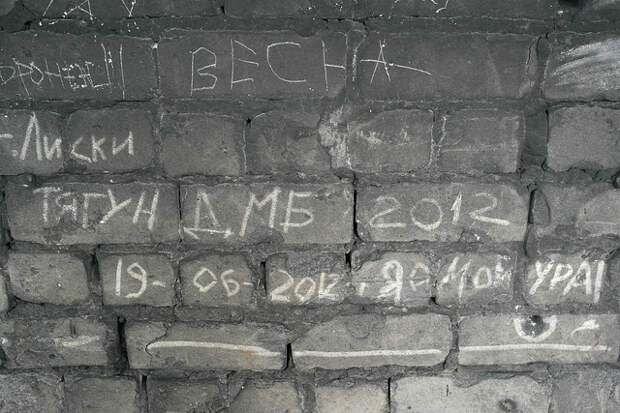 ВЕСНА
г. Лиски
ТЯГУН Д,МБ 2012
19-06-2012. Я ДОМОЙ УРА!